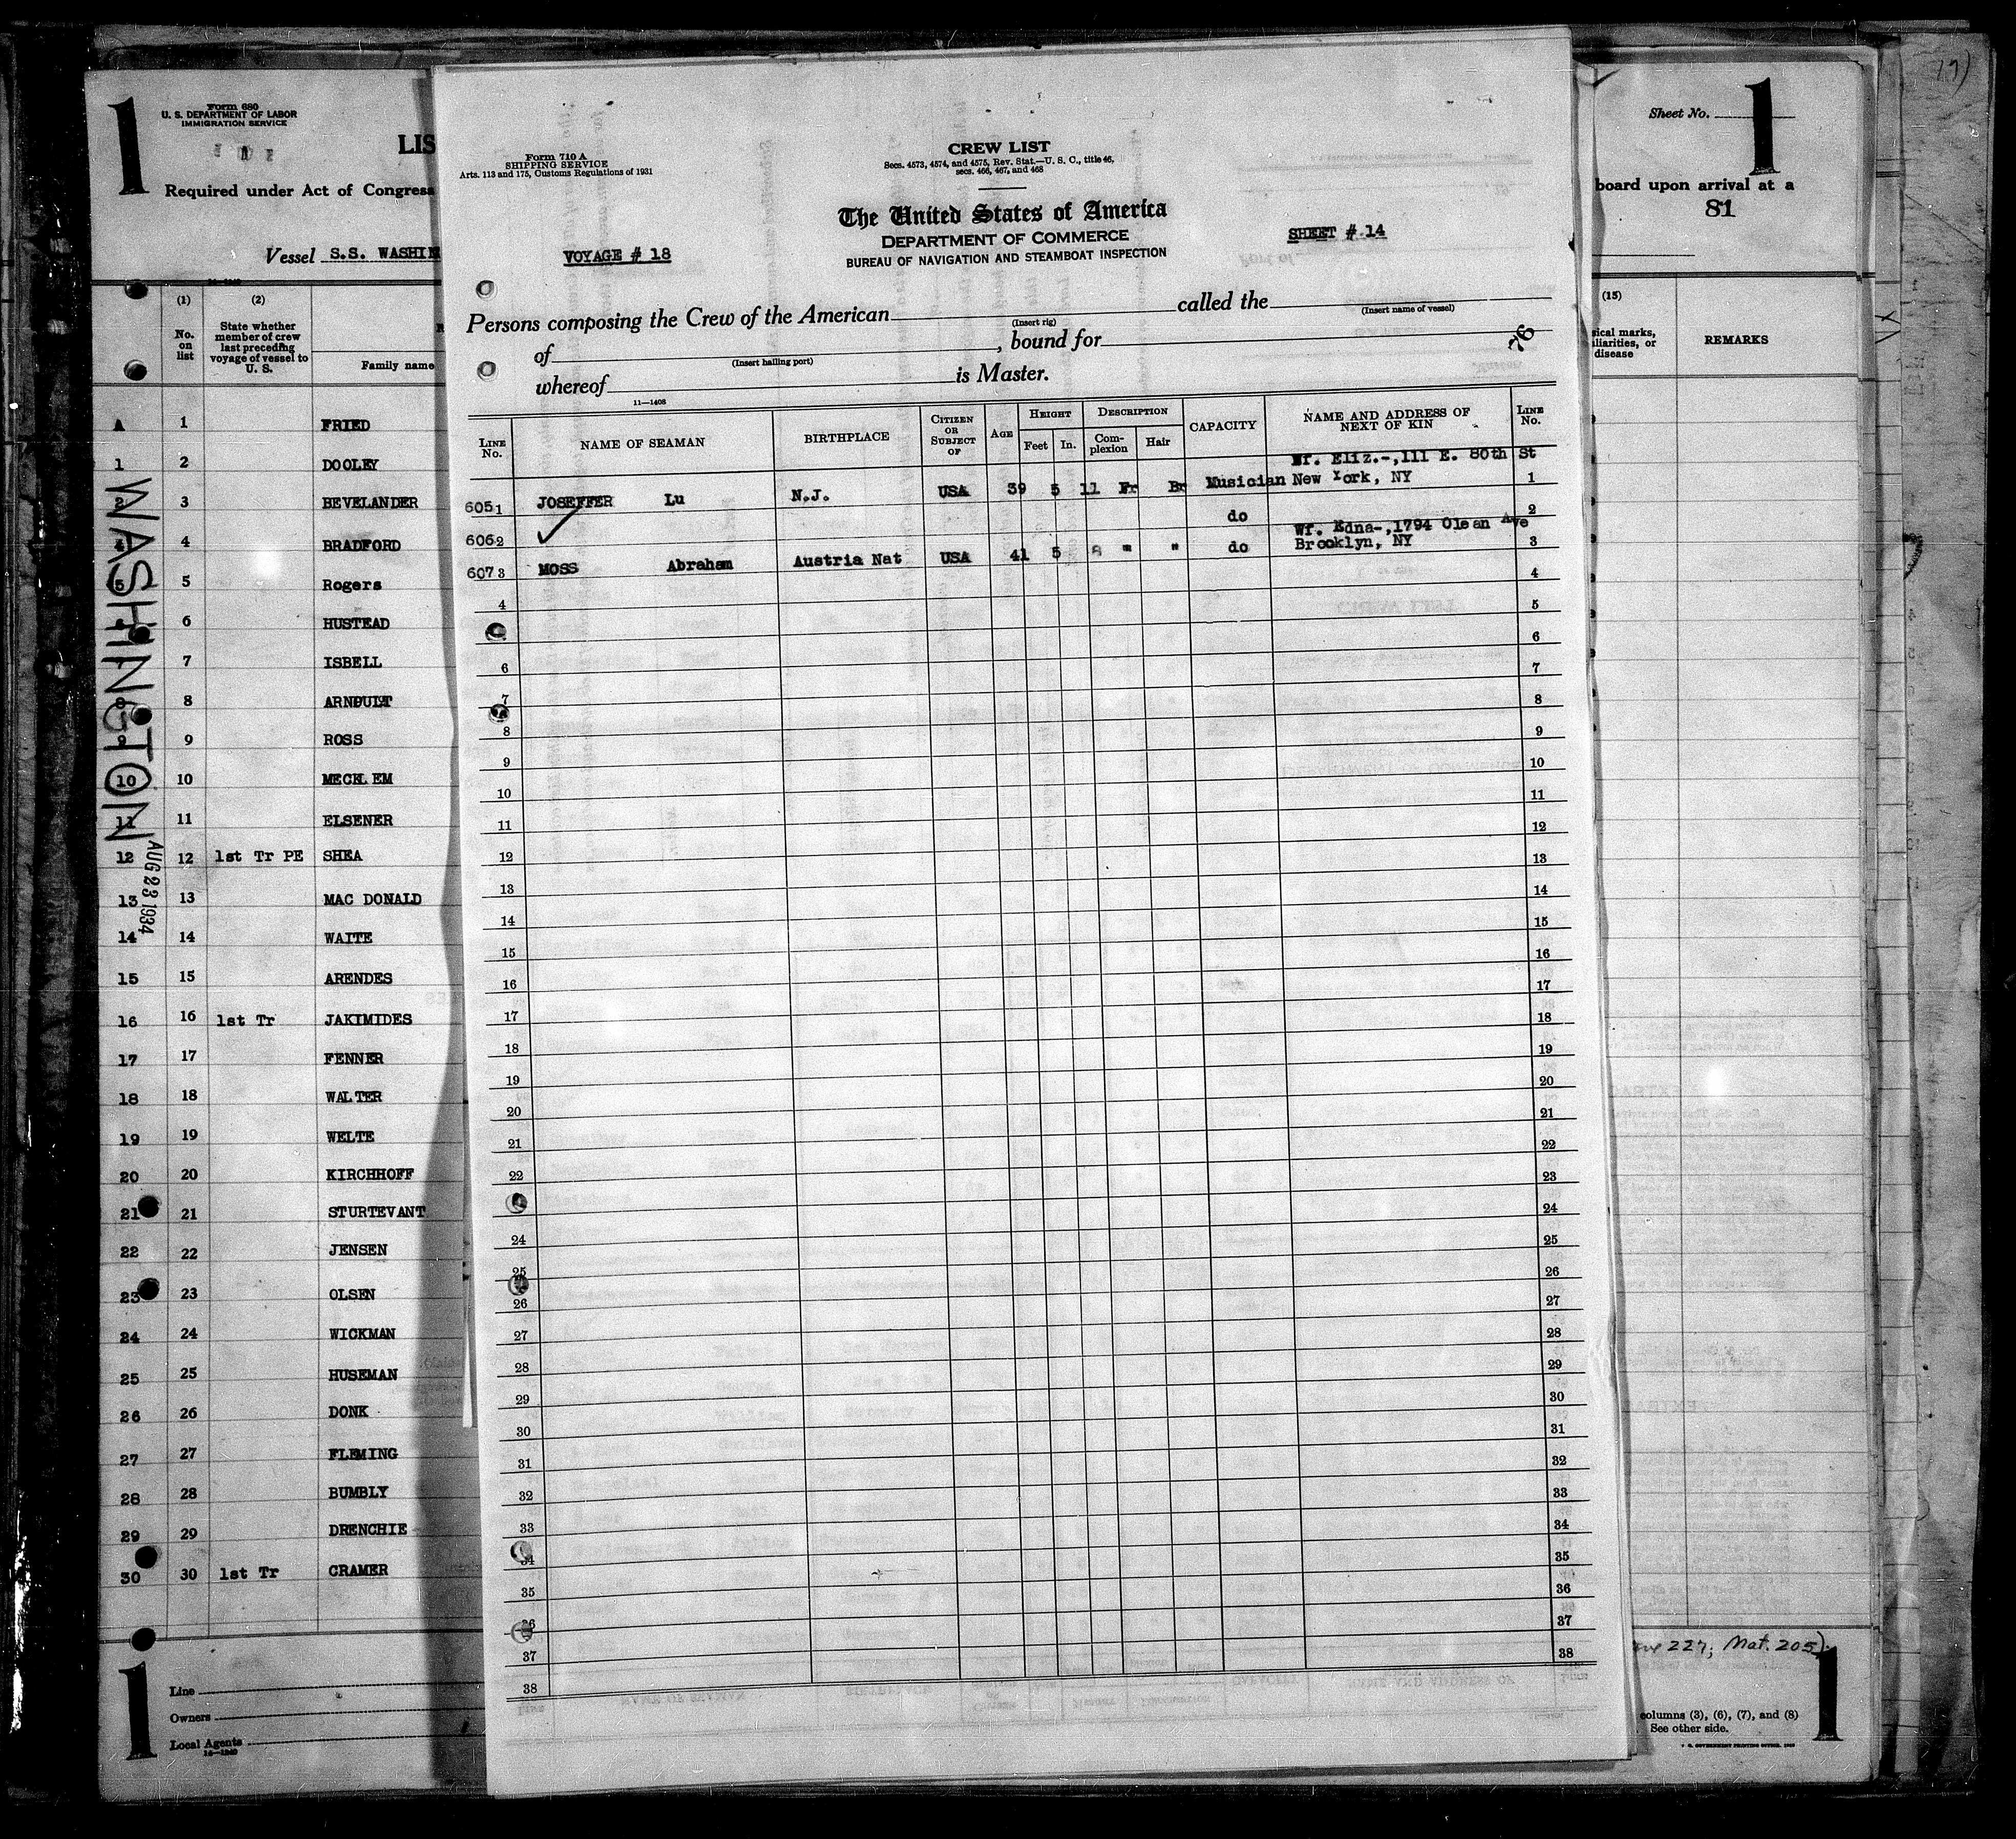 1
Form 680
U. S. DEPARTMENT OF LABOR
IMMIGRATION SERVICE
LIS
Required under Act of Congress
Vessel S.S. WASHIN
(1) (2)
No. on list
State whether member of crew last preceding voyage of vessel to U. S.
Family name
A 1 FRIED
1 2 DOOLEY
2 3 BEVELANDER
4 4 BRADFORD
5 5 Rogers
6 HUSTEAD
7 ISBELL
8 ARNOULT
9 9 ROSS
10 10 MECKLEM
11 11 ELSENER
12 12 1st Tr PE SHEA
13 13 MAC DONALD
14 14 WAITE
15 15 ARENDES
16 16 1st Tr JAKIMIDES
17 17 FENNER
18 18 WALTER
19 19 WELTE
20 20 KIRCHHOFF
21 21 STURTEVANT
22 22 JENSEN
23 23 OLSEN
24 24 WICKMAN
25 25 HUSEMAN
26 26 DONK
27 27 FLEMING
28 28 BUMBLY
29 29 DRENCHIE
30 30 1st Tr CRAMER
WASHINGTON
AUG 23 1934
1
Line
Owners
Local Agents
Form 710 A
SHIPPING SERVICE
Arts. 113 and 175, Customs Regulations of 1931
CREW LIST
Secs. 4573, 4574, and 4575, Rev. Stat.—U. S. C., title 46,
secs. 466, 467, and 468
The United States of America
DEPARTMENT OF COMMERCE
BUREAU OF NAVIGATION AND STEAMBOAT INSPECTION
VOYAGE # 18
SHEET # 14
Persons composing the Crew of the American called the
(Insert rig) (Insert name of vessel)
of , bound for
(Insert hailing port)
76
whereof is Master.
11—1408
LINE No. NAME OF SEAMAN BIRTHPLACE CITIZEN OR SUBJECT OF AGE HEIGHT Feet In. DESCRIPTION Complexion Hair CAPACITY NAME AND ADDRESS OF NEXT OF KIN LINE No.
Wf. Eliz.-,111 E. 80th St
605 1 JOSEFFER Lu N.J. USA 39 5 11 Fr Br Musician New York, NY 1
606 2 do 2
Wf. Edna-,1794 Olean Ave
607 3 MOSS Abraham Austria Nat USA 41 5 8 " " do Brooklyn, NY 3
4 4
5
6 6
7 7
8 8
9 9
10 10
11 11
12 12
13 13
14 14
15 15
16 16
17 17
18 18
19 19
20 20
21 21
22 22
23
24 24
25 25
26 26
27 27
28 28
29 29
30 30
31 31
32 32
33 33
34 34
35 35
36 36
37 37
38 38
Sheet No.
1
board upon arrival at a
81
(15)
sical marks,
liarities, or
disease
REMARKS
227; Nat. 205).
1
columns (3), (6), (7), and (8)
See other side.